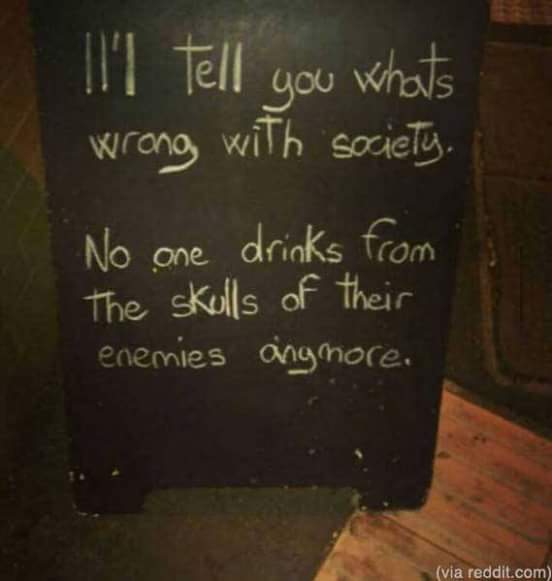 I'll tell you whats
wrong with society.
No one drinks from
the skulls of their
enemies anymore.
(via reddit.com)